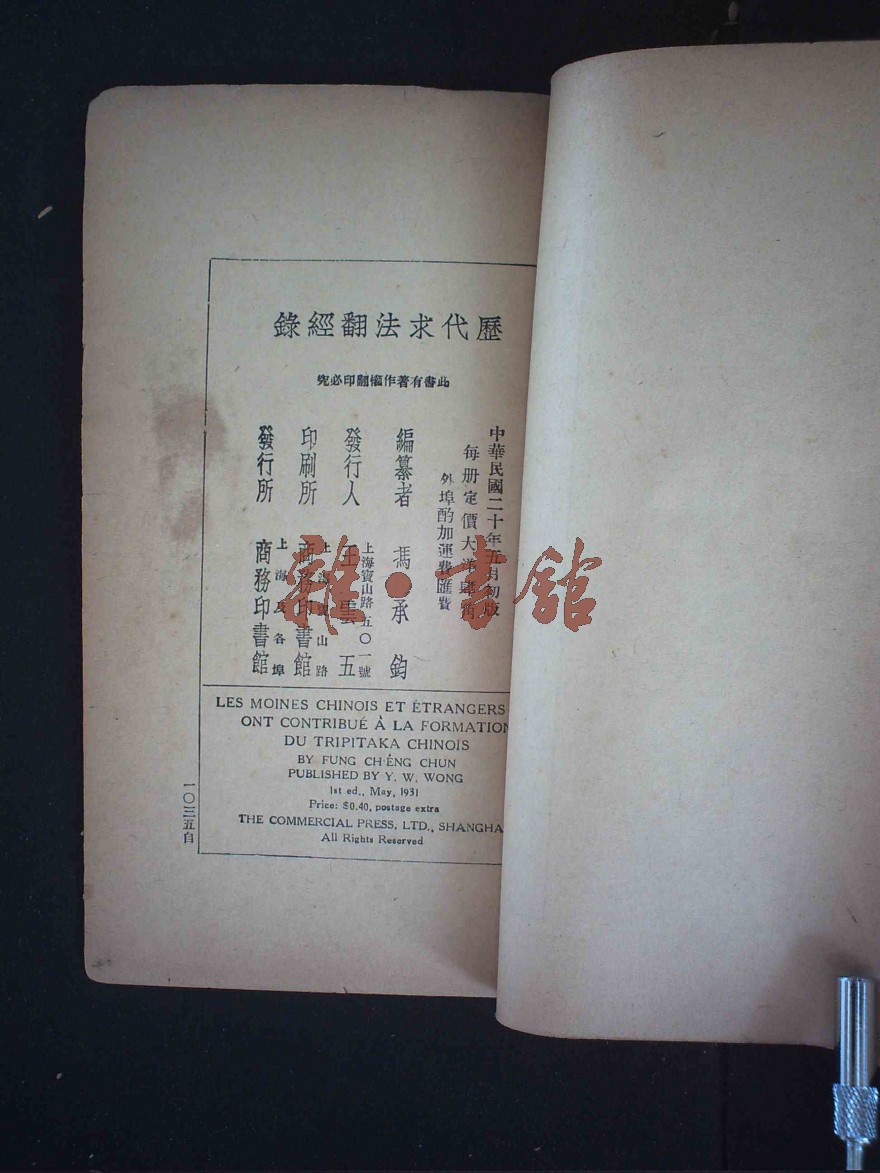 歷代求法翻經錄
此書有著作權翻印必究
中華民國二十年五月初版
每册定價大洋肆角
外埠酌加運費匯費
編纂者 馮承鈞
上海寶山路五〇一號
發行人 王雲五
印刷所 上海寶山路 商務印書館
發行所 上海及各埠 商務印書館
LES MOINES CHINOIS ET ÉTRANGERS
ONT CONTRIBUÉ À LA FORMATION
DU TRIPITAKA CHINOIS
BY FUNG CH'ÊNG CHUN
PUBLISHED BY Y. W. WONG
1st ed., May, 1931
Price: $0.40, postage extra
THE COMMERCIAL PRESS, LTD., SHANGHA
All Rights Reserved
一〇三五自
雜·書館